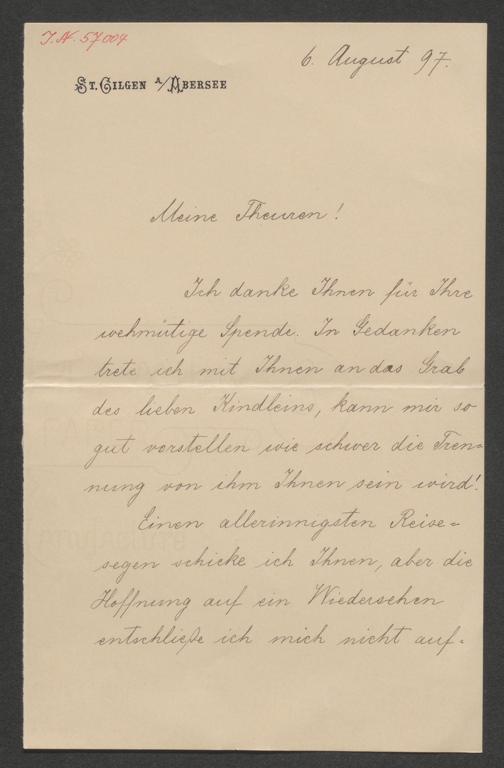 I. N. 57004
6. August 97.
St. Gilgen a/Abersee
Meine Theuren!
Ich danke Ihnen für Ihre
wehmütige Spende. In Gedanken
trete ich mit Ihnen an das Grab
des lieben Kindleins, kann mir so
gut vorstellen wie schwer die Tren-
nung von ihm Ihnen sein wird!
Einen allerinnigsten Reise-
segen schicke ich Ihnen, aber die
Hoffnung auf ein Wiedersehen
entschließe ich mich nicht auf-